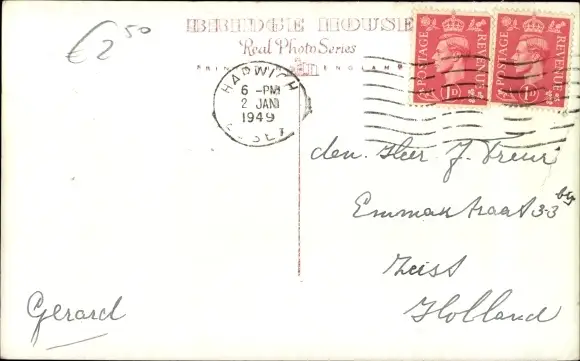 €2 50
BRIDGE HOUSE
Real Photo Series
ENGLAND
POSTAGE REVENUE
1D
POSTAGE REVENUE
1D
HARWICH
6 - PM
2 JAN
1949
ESSEX
den. Heer J. Treur
Emmastraat 33
Zeist
Holland
Gerard